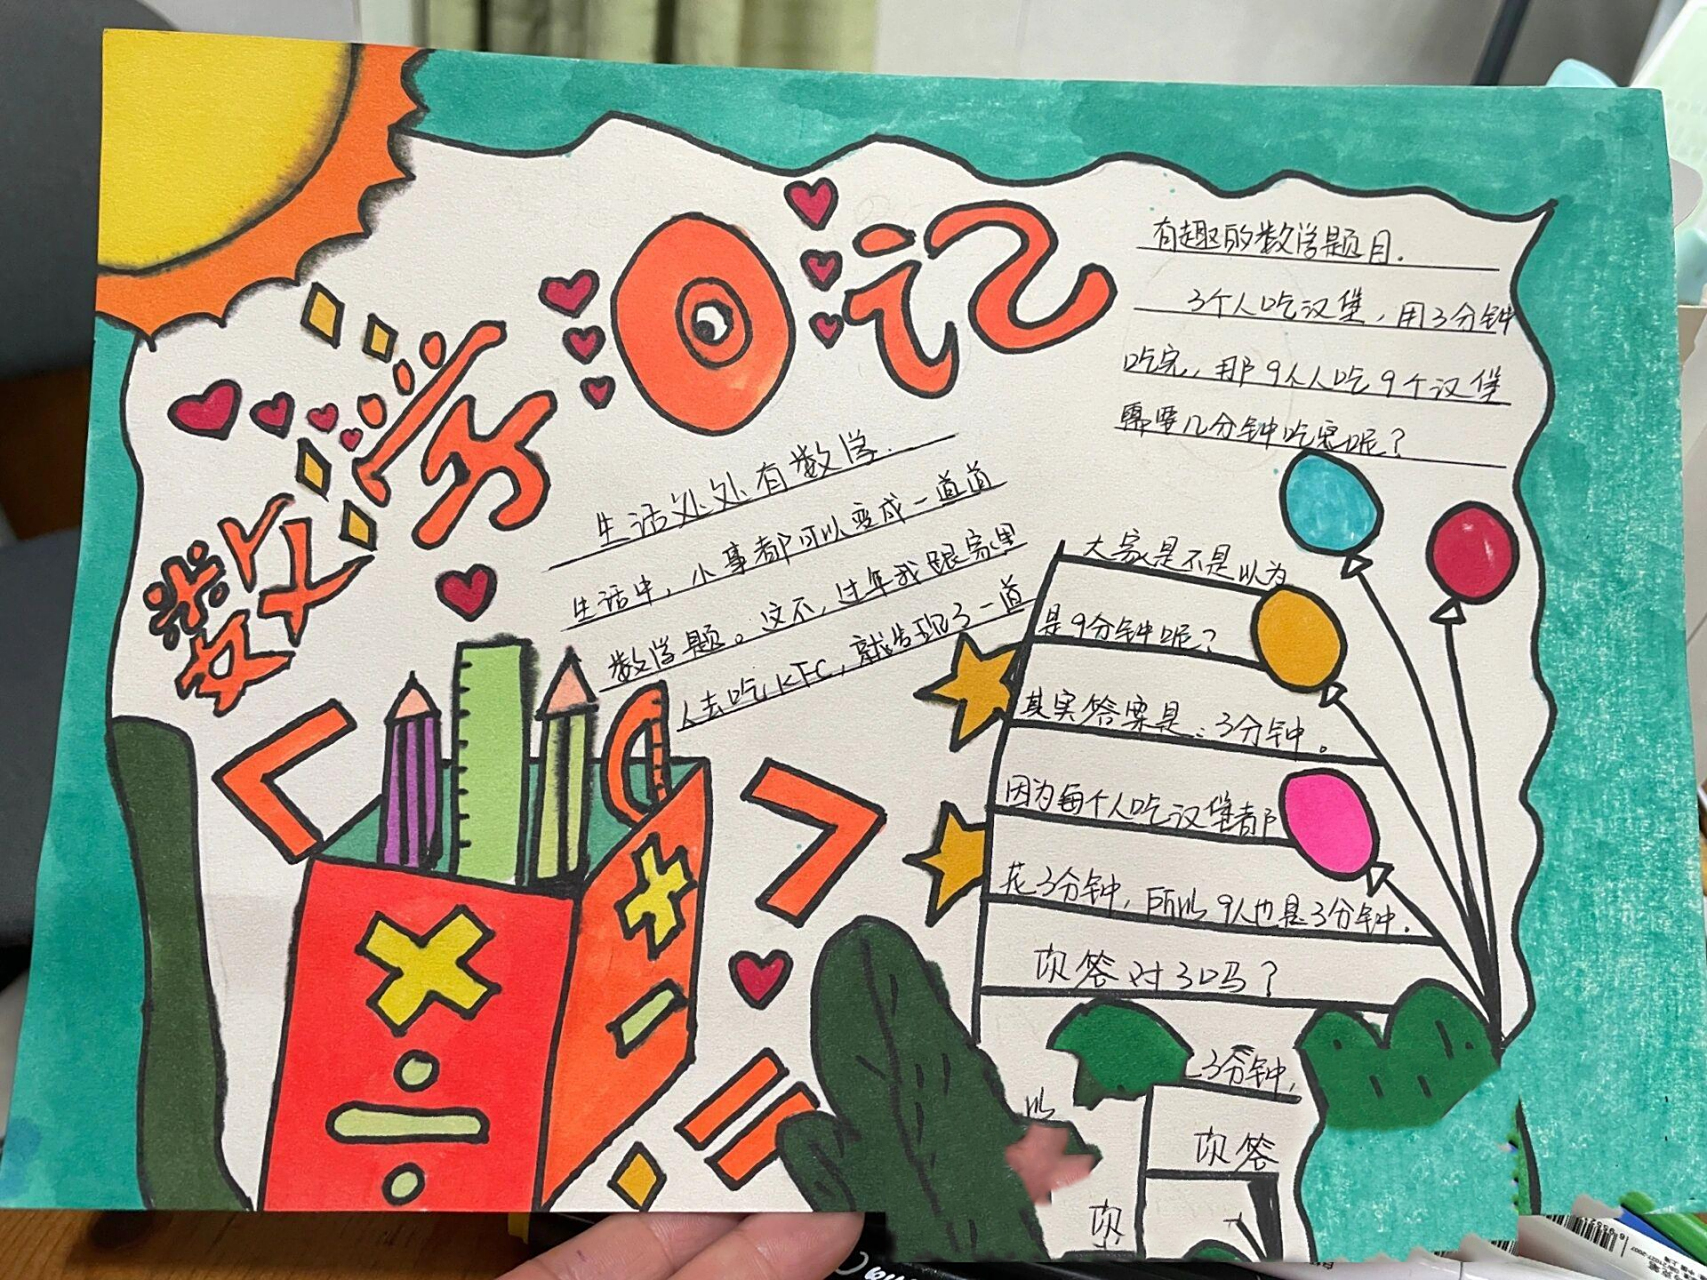 数学日记
生活处处有数学.
生活中，小事都可以变成一道道
数学题。这不，过年我跟家里
人去吃KFC，就发现了一道
有趣的数学题目.
3个人吃汉堡，用3分钟
吃完，那9个人吃9个汉堡
需要几分钟吃完呢？
大家是不是以为
是9分钟呢？
其实答案是：3分钟。
因为每个人吃汉堡都
花3分钟，所以9人也是3分钟.
次答对了吗？
3分钟，
以
次答
次